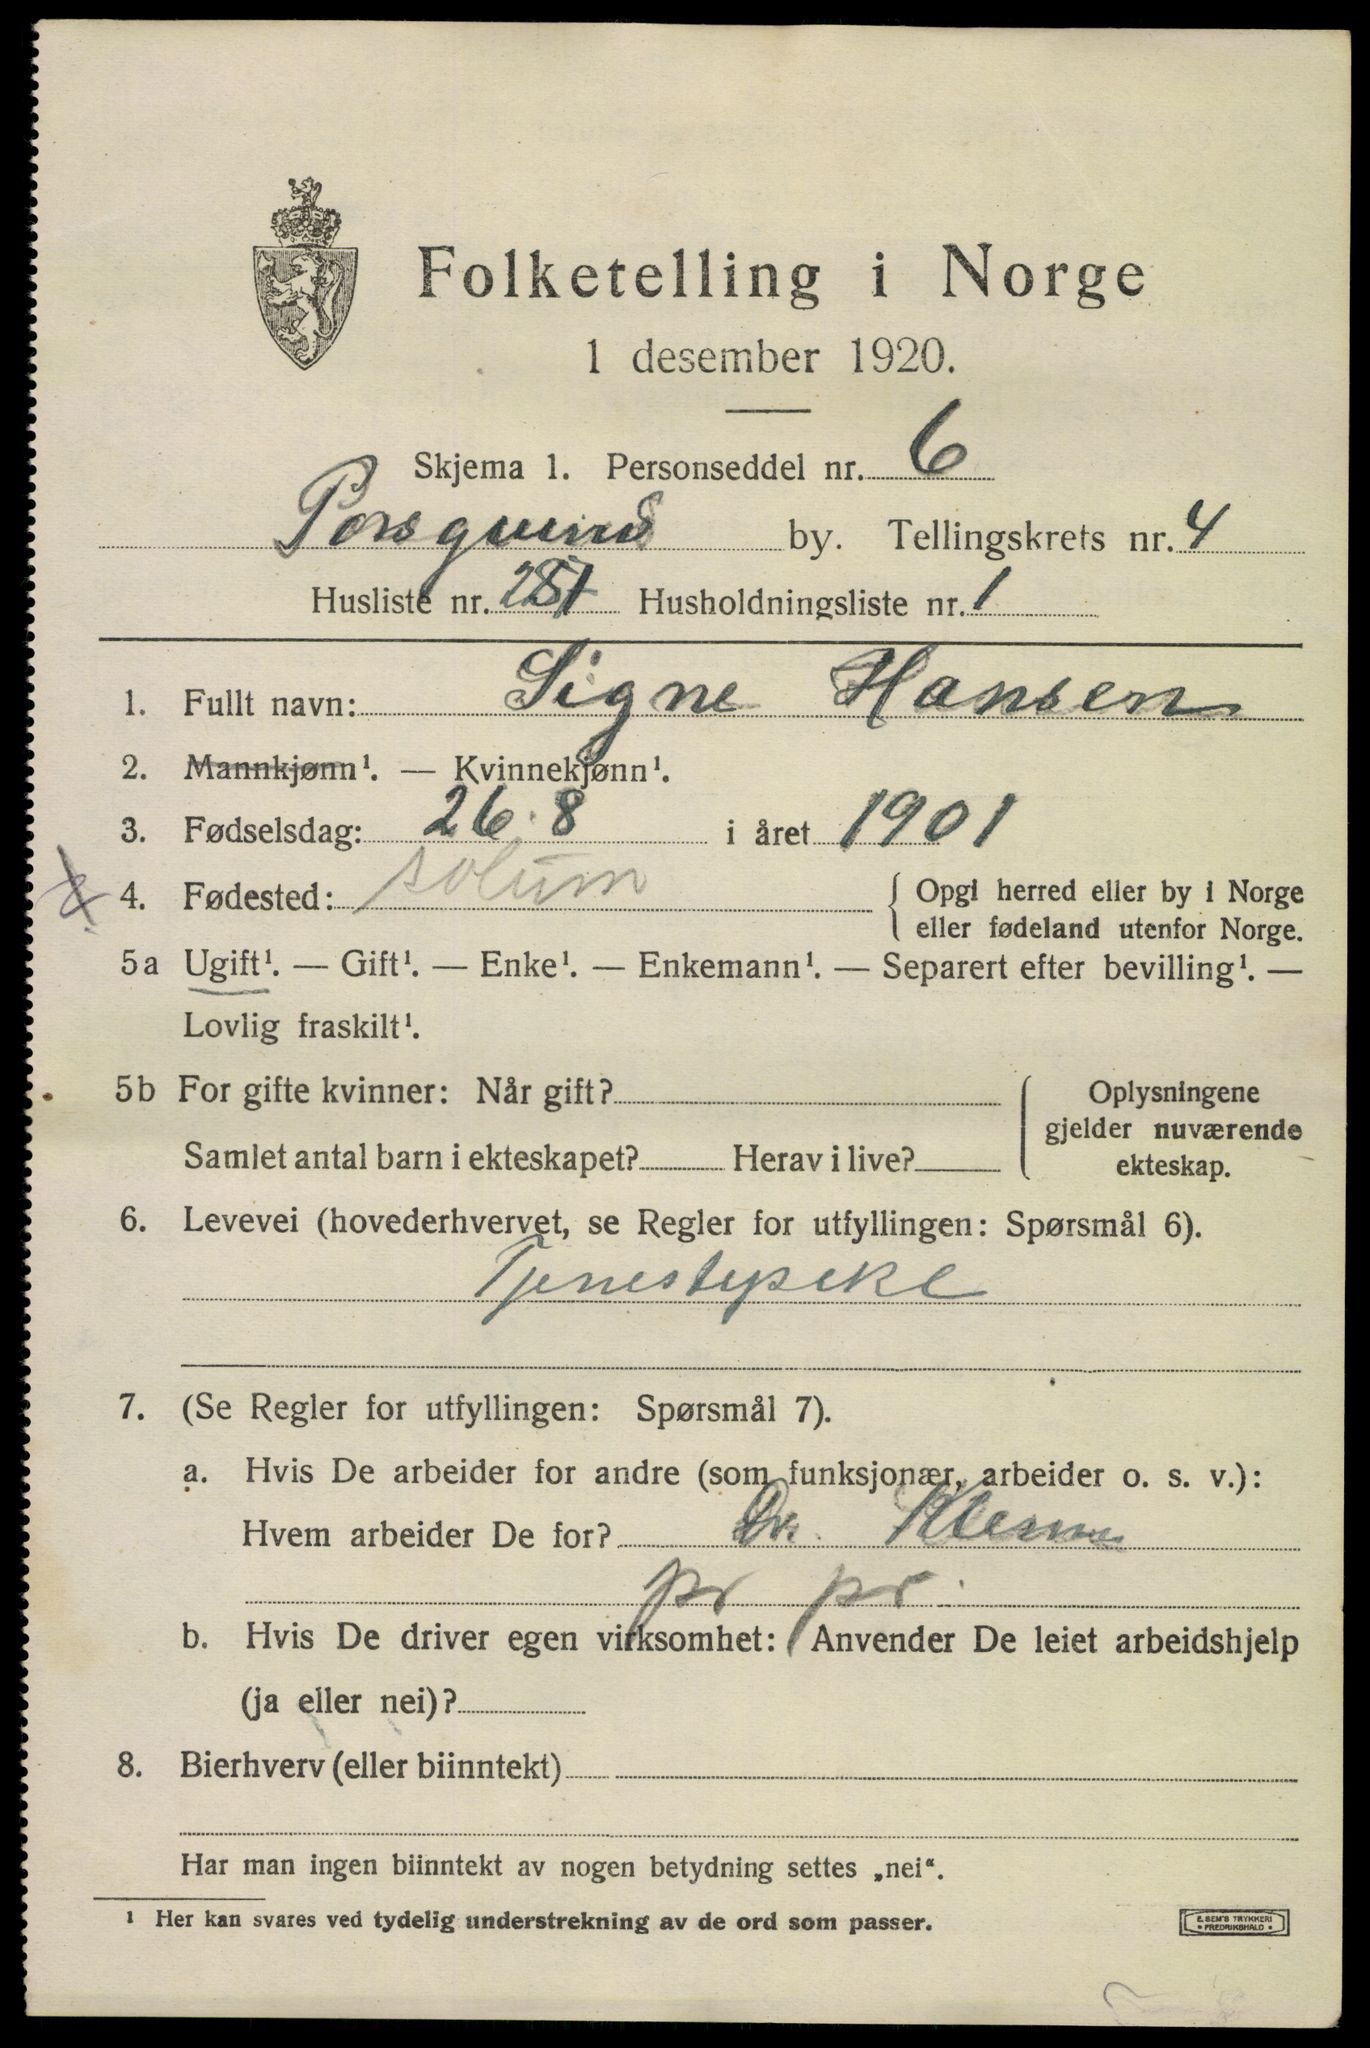 Folketelling i Norge
1 desember 1920.
Skjema 1. Personseddel nr. 6
Porsgrunds by. Tellingskrets nr. 4
Husliste nr. Husholdningsliste nr. 1
1. Fullt navn: Signe Hansen
2. Mannkjønn¹. — Kvinnekjønn¹.
3. Fødselsdag: 26. 8 i året 1901
4. Fødested: solum { Opgi herred eller by i Norge
eller fødeland utenfor Norge.
5a Ugift¹. — Gift¹. — Enke¹. — Enkemann¹. — Separert efter bevilling¹. —
Lovlig fraskilt¹.
5b For gifte kvinner: Når gift? { Oplysningene
gjelder nuværende
Samlet antal barn i ekteskapet? Herav i live? ekteskap.
6. Levevei (hovederhvervet, se Regler for utfyllingen: Spørsmål 6).
Tjenestepike
7. (Se Regler for utfyllingen: Spørsmål 7).
a. Hvis De arbeider for andre (som funksjonær, arbeider o. s. v.):
Hvem arbeider De for? Dr.
pr pr.
b. Hvis De driver egen virksomhet: Anvender De leiet arbeidshjelp
(ja eller nei)?
8. Bierhverv (eller biinntekt)
Har man ingen biinntekt av nogen betydning settes „nei“.
¹ Her kan svares ved tydelig understrekning av de ord som passer.
E. SEM'S TRYKKERI
• FREDRIKSHALD •